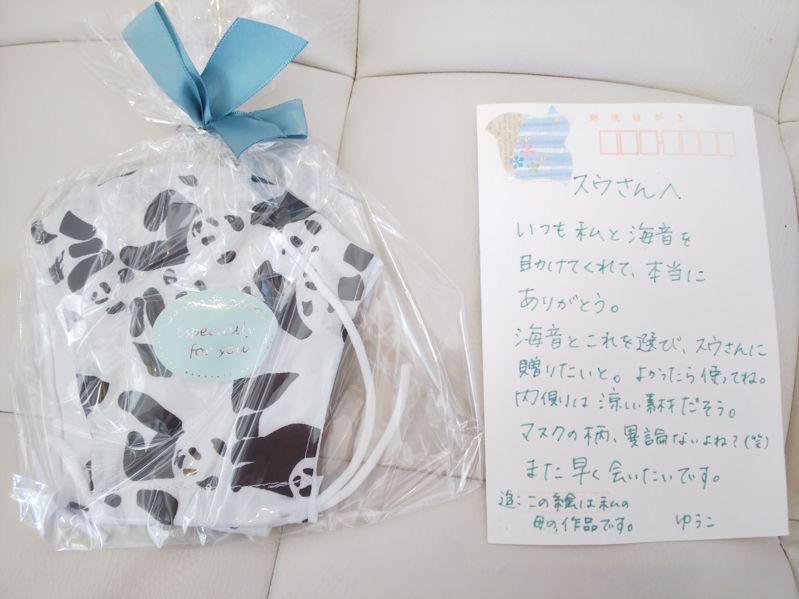 Especially
for you
郵便はがき
スウさんへ
いつも私と海音を
助けてくれて、本当に
ありがとう。
海音とこれを選び、スウさんに
贈りたいと。よかったら使ってね。
内側は涼しい素材だそう。
マスクの柄、異論ないよね?(笑)
また早く会いたいです。
追:この絵は私の
母の作品です。 ゆうこ